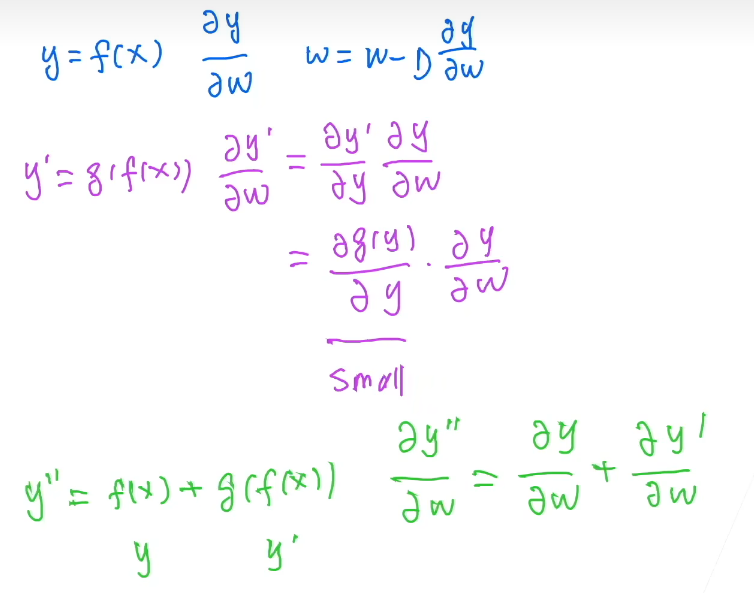 y = f(x) ∂y/∂w w = w - D ∂y/∂w
y' = g(f(x)) ∂y'/∂w = ∂y'/∂y ∂y/∂w
= ∂g(y)/∂y · ∂y/∂w
small
y'' = f(x) + g(f(x)) ∂y''/∂w = ∂y/∂w + ∂y'/∂w
y y'